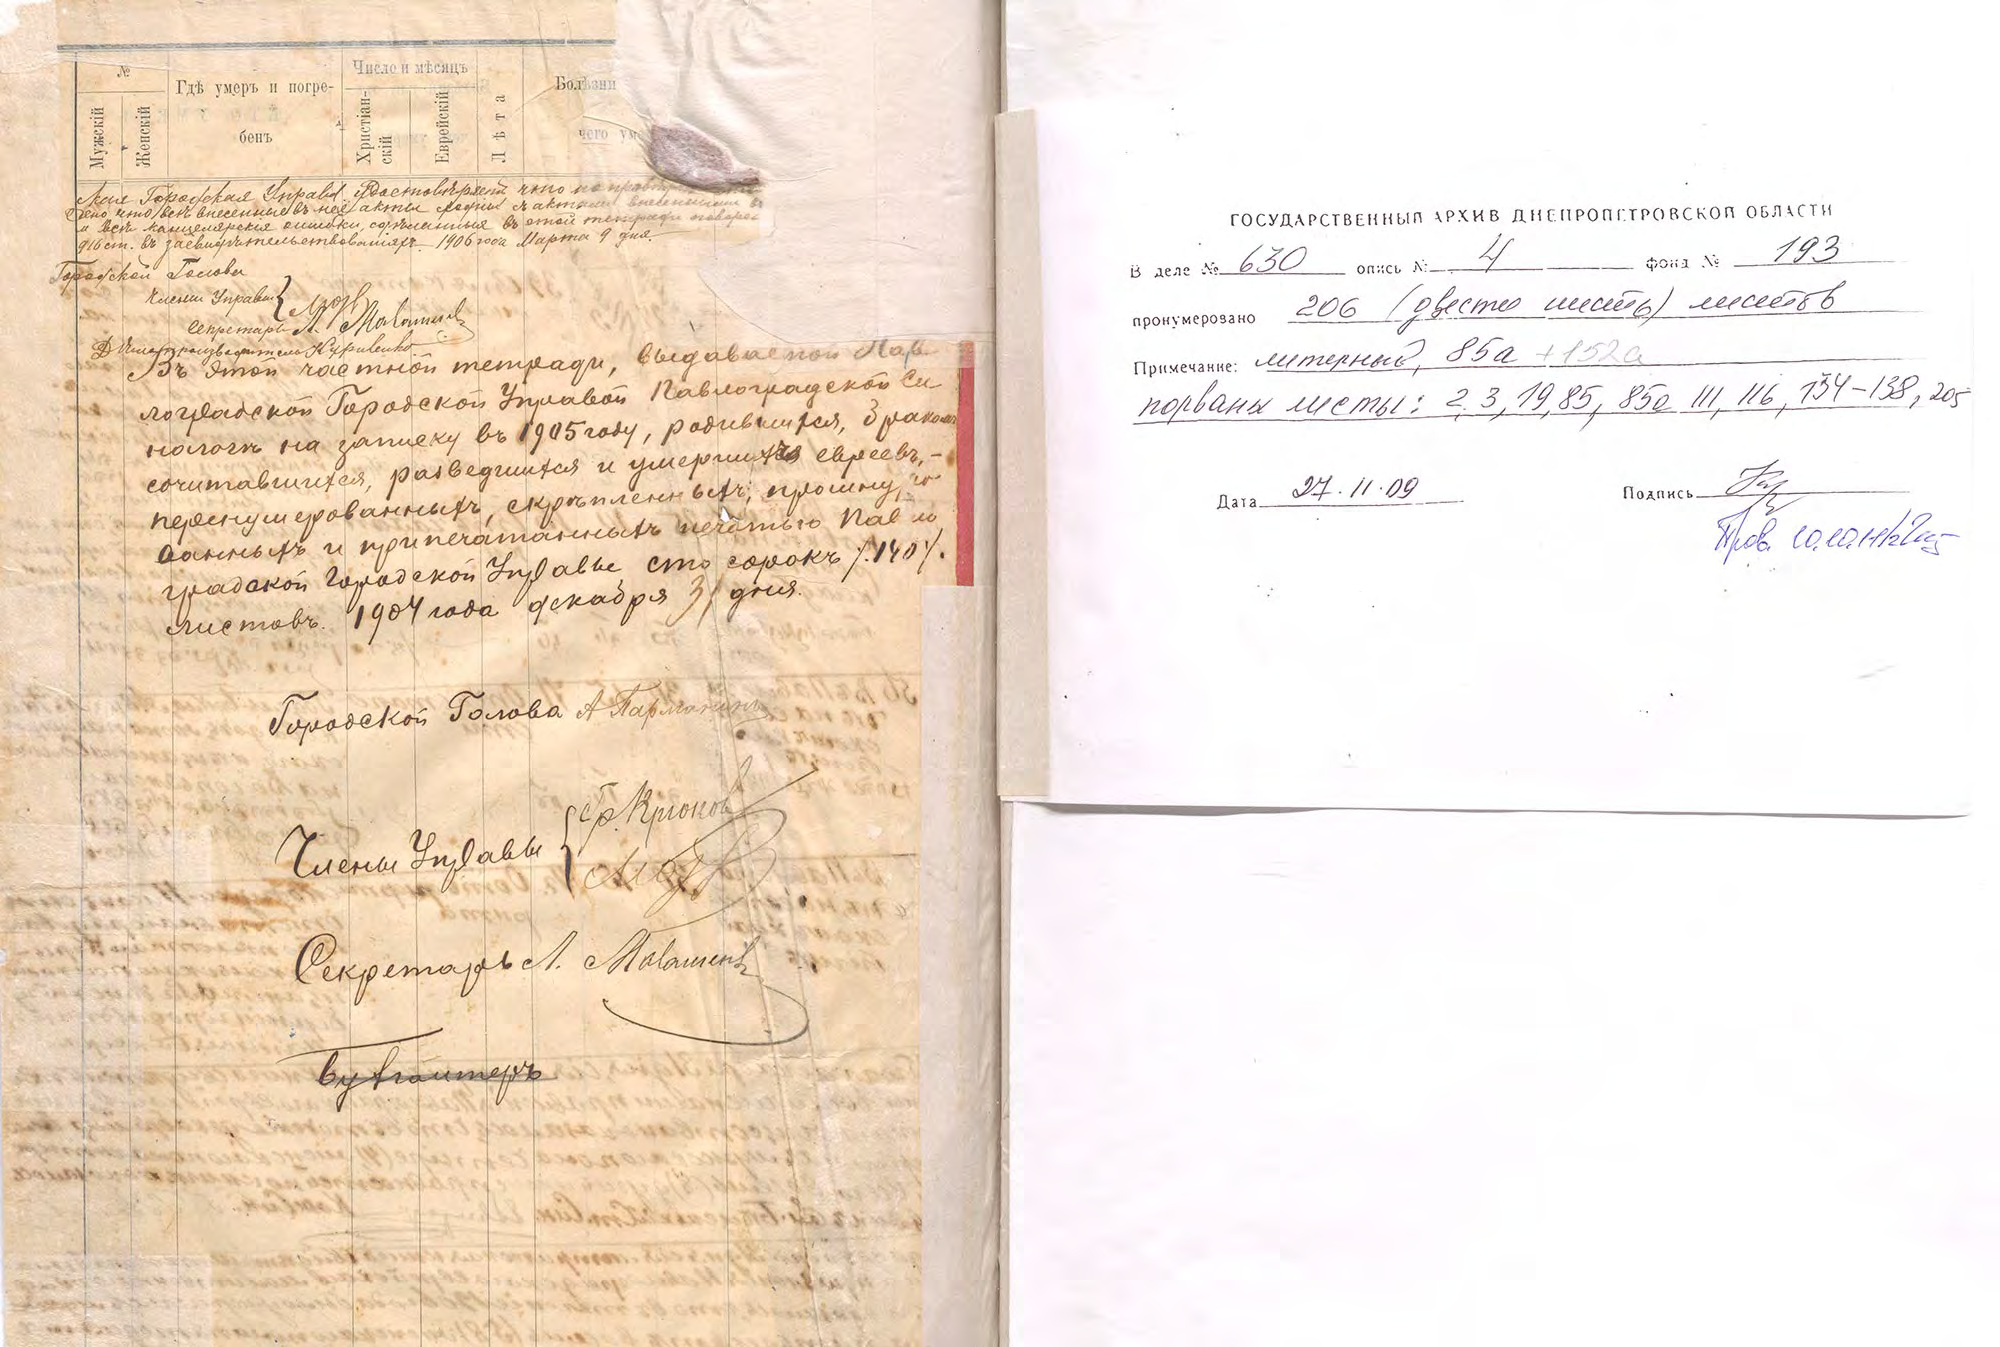 №
Мужскій
Женскій
Гдѣ умеръ и погре-
бенъ
Число и мѣсяцъ
Христіан-
скій
Еврейскій
Лѣта
Болѣзни
чего ум
Городская Управа Удостовѣряетъ что по
что всѣ внесенные въ неё акты
и всѣ канцелярскія ошибки, сдѣланныя въ этой тетради оговорен
въ засвидѣтельствованіяхъ. 1906 года Марта 9 дня.
Городской Голова
Члены Управы
Секретарь Л.
Дѣлопроизводитель Куриленко
Въ этой частной тетради, выдаваемой Пав-
лоградской Городской Управой Павлоградской Си
нагогѣ на записку въ 1905 году, родившихся, бракомъ
сочитавшихся, разведшихся и умершихъ евреевъ, -
перенумерованныхъ, скрѣпленныхъ, прошну,ро
ванныхъ и припечатанныхъ печатью Павло
градской Городской Управы, сто сорокъ /.140/.
листовъ. 1904 года декабря 31 дня.
Городской Голова А
Члены Управы
Гр. Крюковъ
Секретарь Л.
Бухгалтеръ
ГОСУДАРСТВЕННЫЙ АРХИВ ДНЕПРОПЕТРОВСКОЙ ОБЛАСТИ
В деле № 630 опись № 4 фонд № 193
пронумеровано 206 (двести шесть) листов
Примечание: литерный, 85а +152а
порваны листы: 2,3,19,85, 85а 111, 116, 134-138, 205
Дата 27.11.09 Подпись